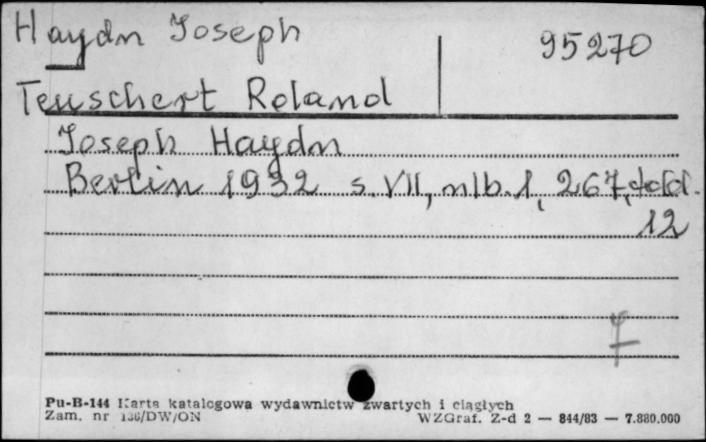 Haydn Joseph
95270
Teuschert Roland
Joseph Haydn
Berlin 1932 s. VII, nlb. 1, 267,
12
Pu-B-144 Karta katalogowa wydawnictw zwartych i ciągłych
Zam. nr 136/DW/ON WZGraf. Z-d 2 — 844/83 — 7.880.000